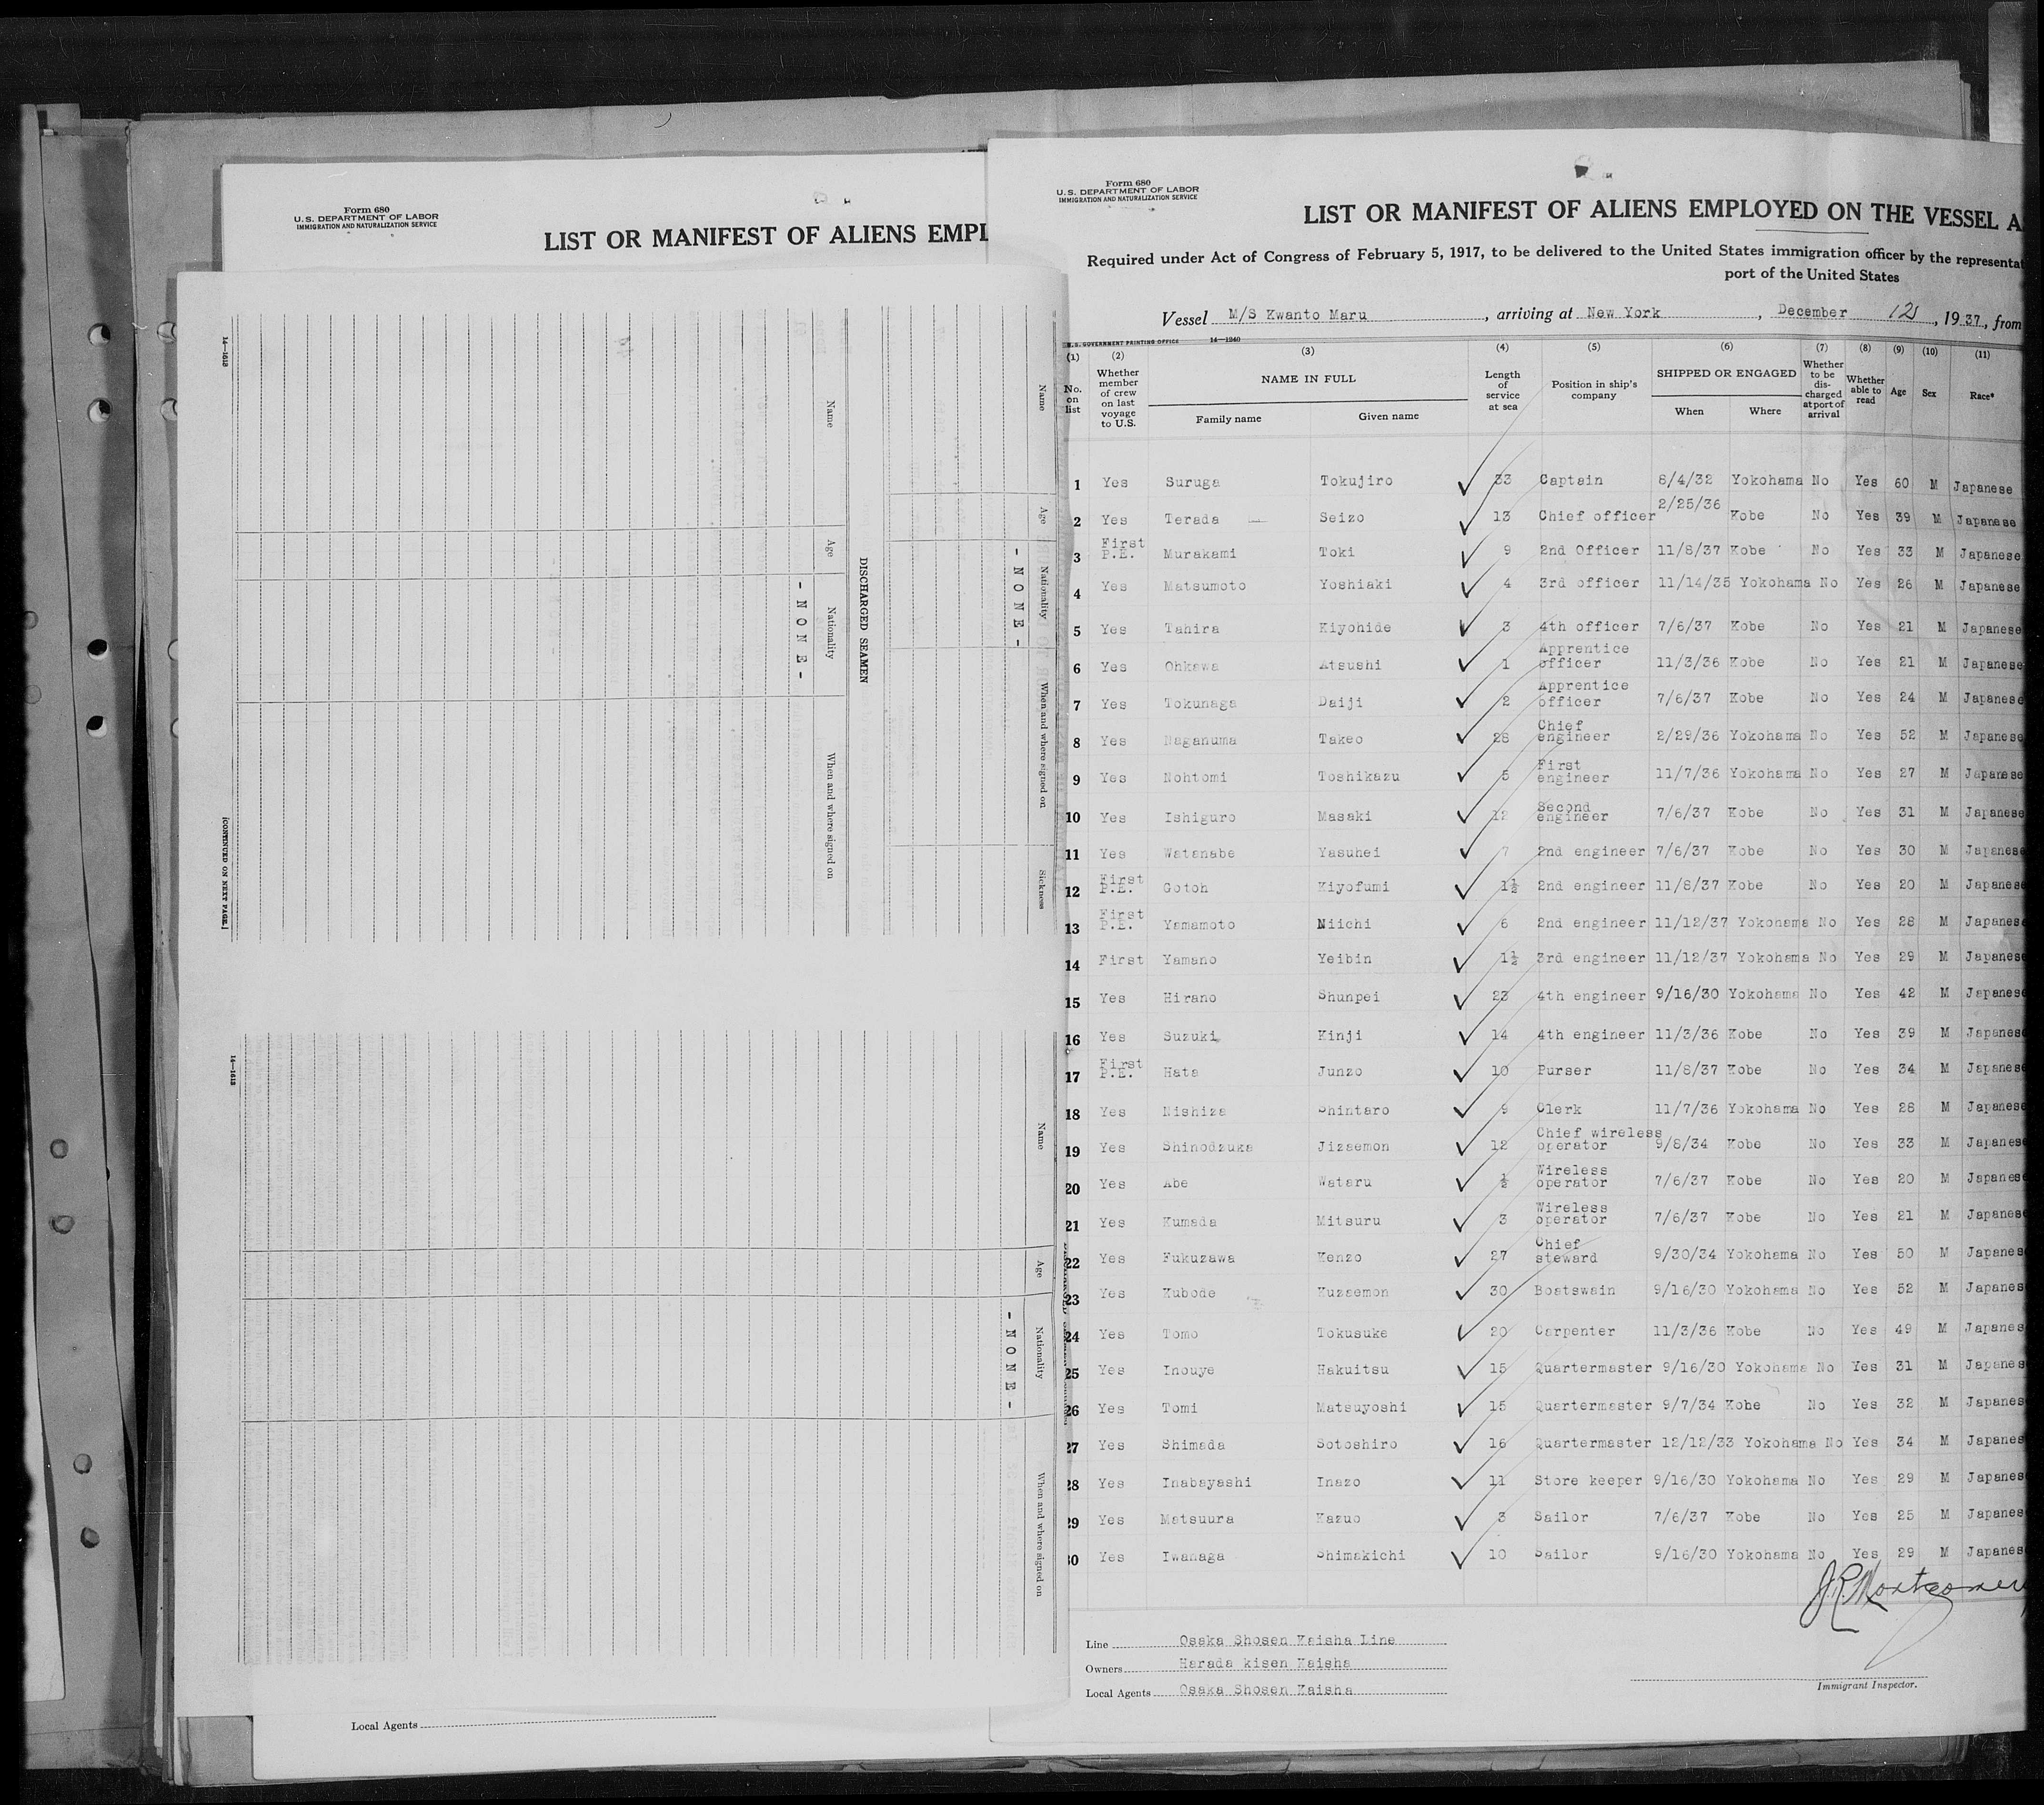 Form 680
U.S. DEPARTMENT OF LABOR
IMMIGRATION AND NATURALIZATION SERVICE
LIST OR MANIFEST OF ALIENS EMPL
14—1613
Name
Age
Nationality
When and where signed on
Sickness
- N O N E -
DISCHARGED SEAMEN
Name
Age
Nationality
When and where signed on
- N O N E -
[CONTINUED ON NEXT PAGE]
14—1613
Name
Age
Nationality
When and where signed on
- N O N E -
Local Agents
Form 680
U.S. DEPARTMENT OF LABOR
IMMIGRATION AND NATURALIZATION SERVICE
LIST OR MANIFEST OF ALIENS EMPLOYED ON THE VESSEL A
Required under Act of Congress of February 5, 1917, to be delivered to the United States immigration officer by the representat
port of the United States
Vessel M/S Kwanto Maru, arriving at New York, December 12, 1937, from
U.S. GOVERNMENT PRINTING OFFICE 14—1240
(1) (2) (3) (4) (5) (6) (7) (8) (9) (10) (11)
No. on list Whether member of crew on last voyage to U.S. NAME IN FULL Family name Given name Length of service at sea Position in ship's company SHIPPED OR ENGAGED When Where Whether to be discharged at port of arrival Whether able to read Age Sex Race*
1 Yes Suruga Tokujiro 33 Captain 8/4/32 Yokohama No Yes 60 M Japanese
2 Yes Terada Seizo 13 Chief officer 2/25/36 Kobe No Yes 39 M Japanese
3 First P.E. Murakami Toki 9 2nd Officer 11/8/37 Kobe No Yes 33 M Japanese
4 Yes Matsumoto Yoshiaki 4 3rd officer 11/14/35 Yokohama No Yes 26 M Japanese
5 Yes Tahira Kiyohide 3 4th officer 7/6/37 Kobe No Yes 21 M Japanese
6 Yes Ohkawa Atsushi 1 Apprentice officer 11/3/36 Kobe No Yes 21 M Japanese
7 Yes Tokunaga Daiji 2 Apprentice officer 7/6/37 Kobe No Yes 24 M Japanese
8 Yes Naganuma Takeo 28 Chief engineer 2/29/36 Yokohama No Yes 52 M Japanese
9 Yes Nohtomi Toshikazu 5 First engineer 11/7/36 Yokohama No Yes 27 M Japanese
10 Yes Ishiguro Masaki 12 Second engineer 7/6/37 Kobe No Yes 31 M Japanese
11 Yes Watanabe Yasuhei 7 2nd engineer 7/6/37 Kobe No Yes 30 M Japanese
12 First P.E. Gotoh Kiyofumi 1½ 2nd engineer 11/8/37 Kobe No Yes 20 M Japanese
13 First P.E. Yamamoto Niichi 6 2nd engineer 11/12/37 Yokohama No Yes 28 M Japanese
14 First Yamano Yeibin 1½ 3rd engineer 11/12/37 Yokohama No Yes 29 M Japanese
15 Yes Hirano Shunpei 23 4th engineer 9/16/30 Yokohama No Yes 42 M Japanese
16 Yes Suzuki Kinji 14 4th engineer 11/3/36 Kobe No Yes 39 M Japanese
17 First P.E. Hata Junzo 10 Purser 11/8/37 Kobe No Yes 34 M Japanese
18 Yes Nishiza Shintaro 9 Clerk 11/7/36 Yokohama No Yes 28 M Japanese
19 Yes Shinodzuka Jizaemon 12 Chief wireless operator 9/8/34 Kobe No Yes 33 M Japanese
20 Yes Abe Wataru ½ Wireless operator 7/6/37 Kobe No Yes 20 M Japanese
21 Yes Kumada Mitsuru 3 Wireless operator 7/6/37 Kobe No Yes 21 M Japanese
22 Yes Fukuzawa Kenzo 27 Chief steward 9/30/34 Yokohama No Yes 50 M Japanes
23 Yes Kubode Kuzaemon 30 Boatswain 9/16/30 Yokohama No Yes 52 M Japanes
24 Yes Tomo Tokusuke 20 Carpenter 11/3/36 Kobe No Yes 49 M Japanes
25 Yes Inouye Hakuitsu 15 Quartermaster 9/16/30 Yokohama No Yes 31 M Japanes
26 Yes Tomi Matsuyoshi 15 Quartermaster 9/7/34 Kobe No Yes 32 M Japanes
27 Yes Shimada Sotoshiro 16 Quartermaster 12/12/33 Yokohama No Yes 34 M Japanes
28 Yes Inabayashi Inazo 11 Store keeper 9/16/30 Yokohama No Yes 29 M Japanes
29 Yes Matsuura Kazuo 3 Sailor 7/6/37 Kobe No Yes 25 M Japanes
30 Yes Iwanaga Shimakichi 10 Sailor 9/16/30 Yokohama No Yes 29 M Japanes
J.R. Montgomery
Line Osaka Shosen Kaisha Line
Owners Harada kisen Kaisha
Local Agents Osaka Shosen Kaisha
Immigrant Inspector.